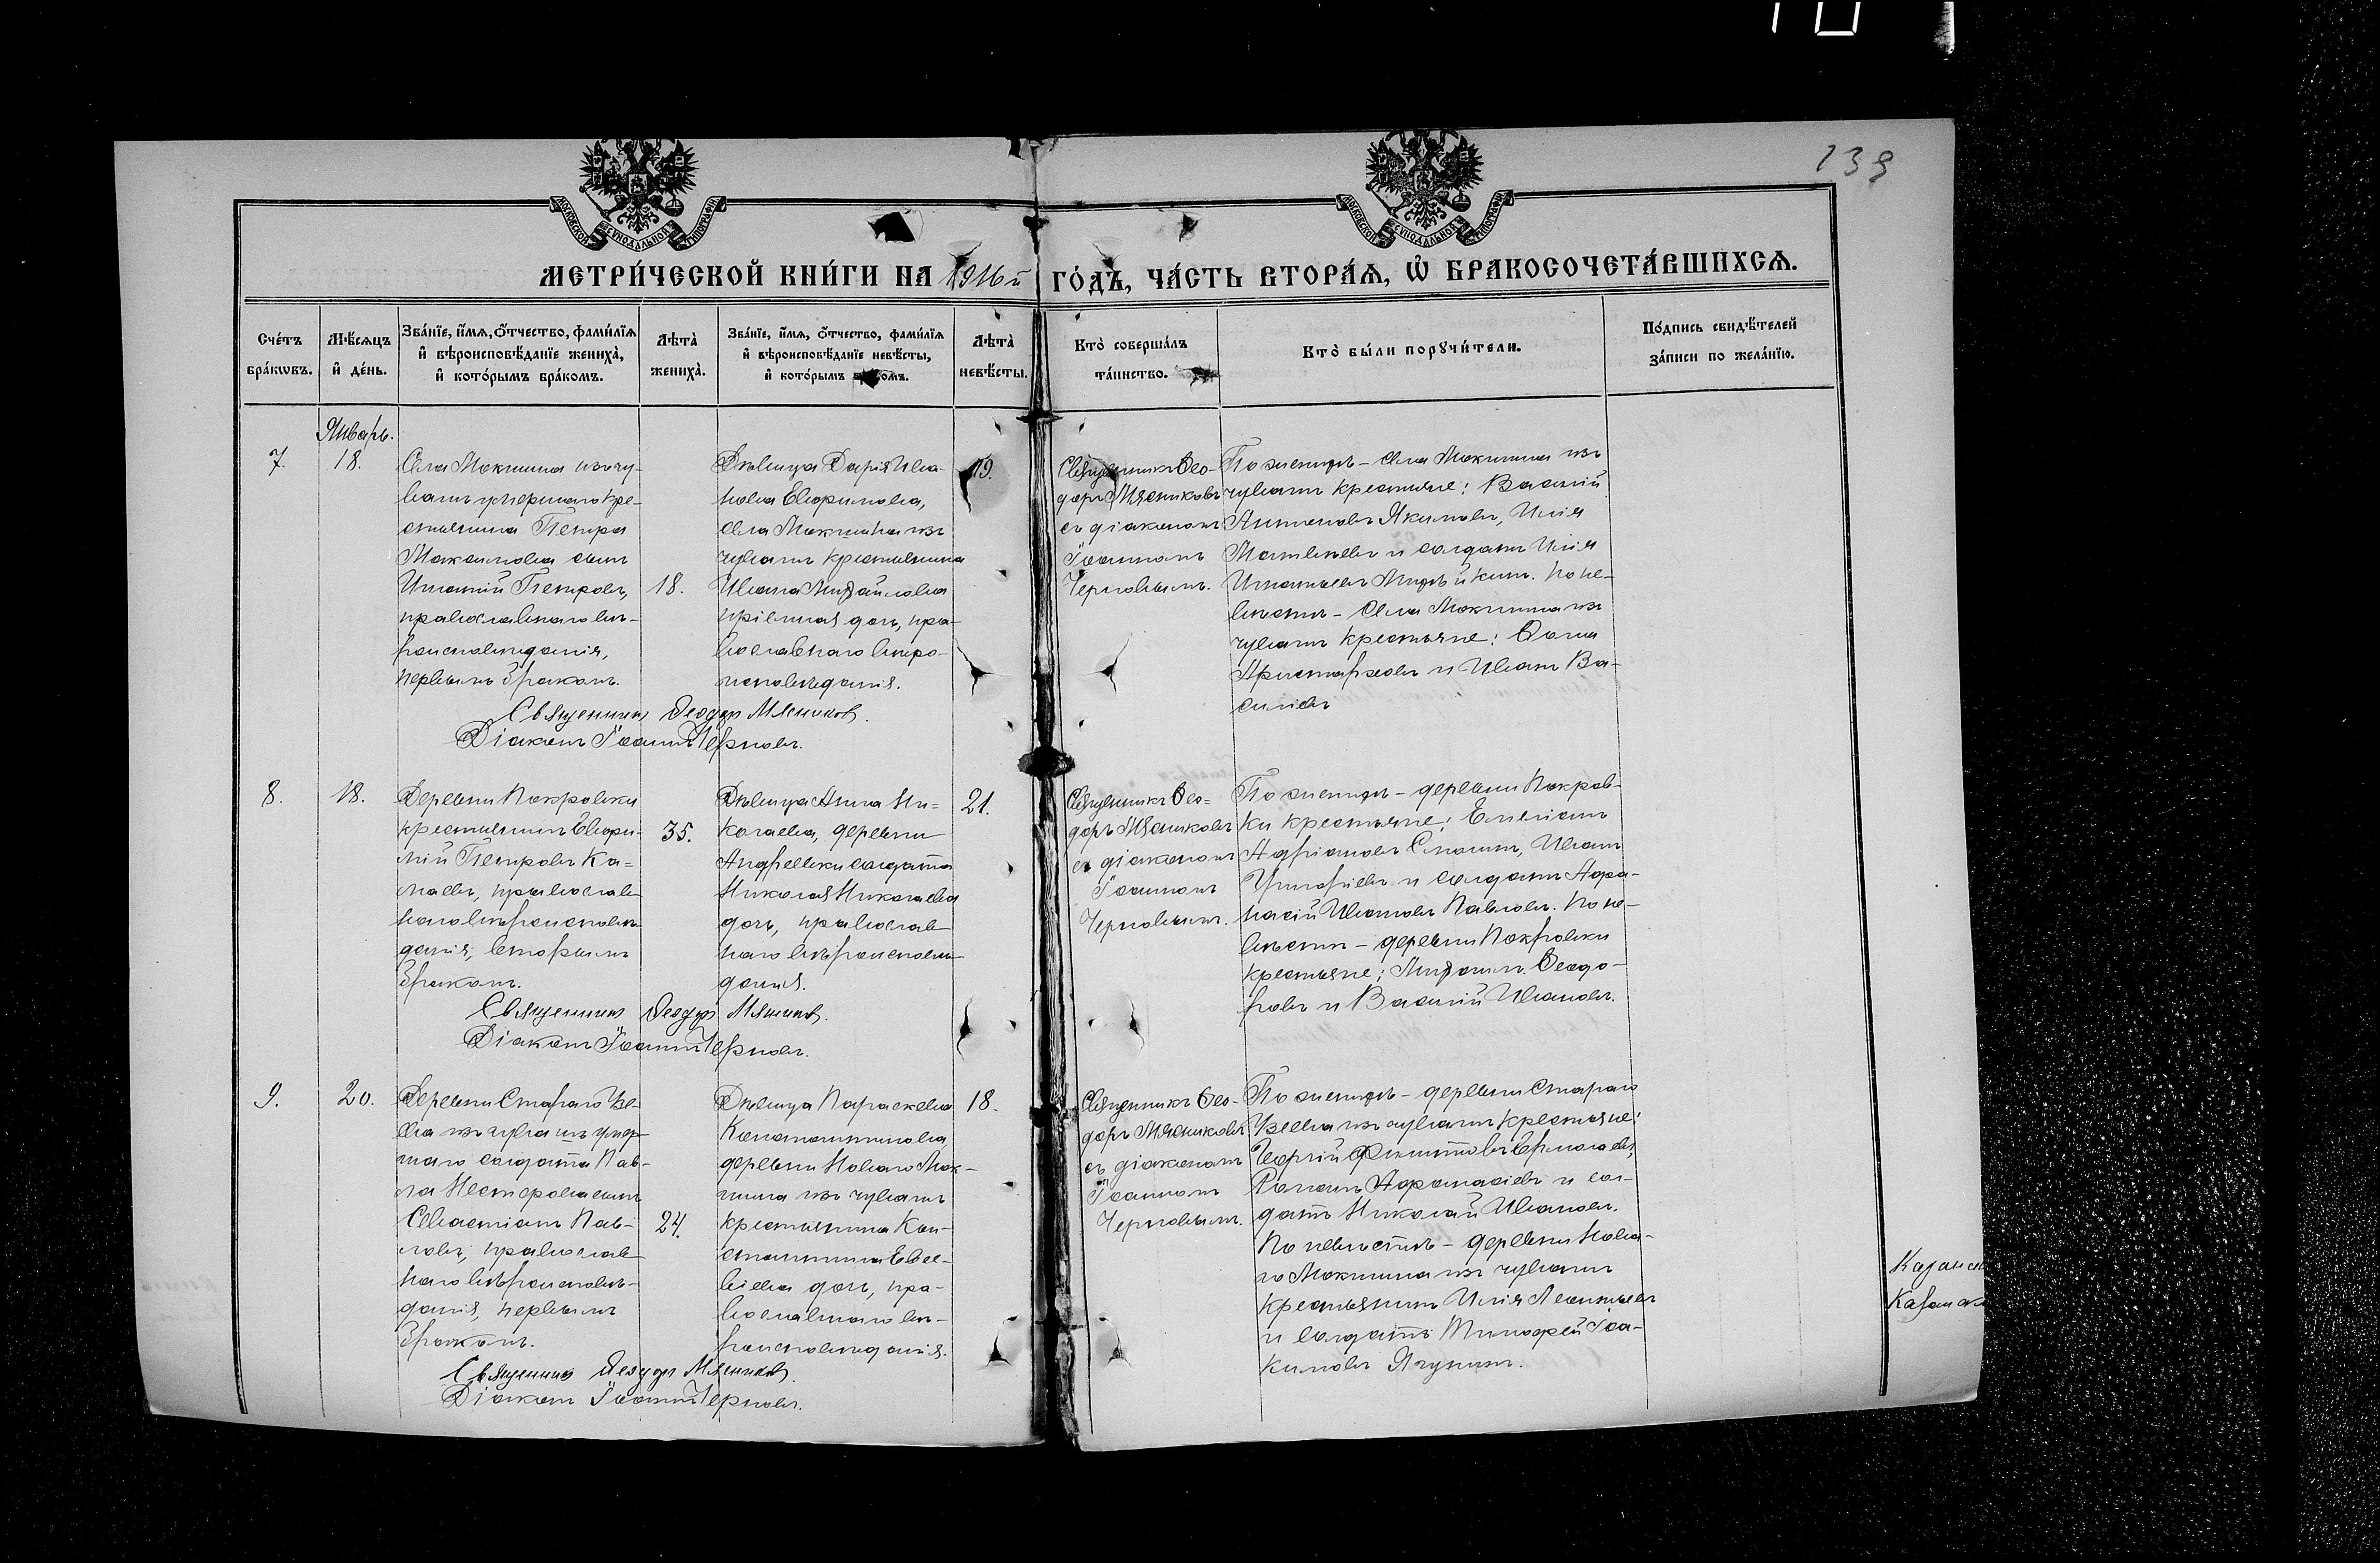 139
МОСКОВСКОЙ СѴНОДАЛЬНОЙ ТИПОГРАФІИ
МОСКОВСКОЙ СѴНОДАЛЬНОЙ ТИПОГРАФІИ
МЕТРИ́ЧЕСКОЙ КНИ́ГИ НА 1916й ГО́ДЪ, ЧА́СТЬ ВТОРА́Я, Ѡ҆ БРАКОСОЧЕТА́ВШИХСѦ.
Сче́тъ
бра́кѡвъ.
Мѣ́сѧцъ
и҆ де́нь.
Зва́нїе, и҆́мѧ, ѻ҆́тчество, фами́лїѧ
и҆ вѣроисповѣ́данїе жениха̀,
и҆ кото́рымъ бра́комъ.
Лѣта̀
жениха̀.
Зва́нїе, и҆́мѧ, ѻ҆́тчество, фами́лїѧ
и҆ вѣроисповѣ́данїе невѣ́сты,
и҆ кото́рымъ бра́комъ.
Лѣта̀
невѣ́сты.
Кто̀ соверша́лъ
та́инство.
Кто̀ бы́ли порꙋчи́тели.
По́дпись свидѣ́телей
за́писи по жела́нїю.
Январь.
7.
18.
Села Мокшина изъ чу-
вашъ умершаго кре-
стьянина Петра
Максимова сынъ
Игнатій Петровъ,
православнаго вѣ-
роисповѣданія,
первымъ бракомъ.
18.
Дѣвица Дарія Ива-
нова Евфимова,
села Мокшина изъ
чувашъ крестьянина
Ивана Михайлова
пріемная дочь, пра-
вославнаго вѣро-
исповѣданія.
19.
Священникъ Ѳео-
доръ Мясниковъ
съ діакономъ
Іоанномъ
Черновымъ.
По женихѣ - села Мокшина изъ
чувашъ крестьяне: Василій
Антоновъ Якимовъ, Илія
Матвѣевъ и солдатъ Илія
Игнатьевъ Михѣйкинъ. По не-
вѣстѣ - села Мокшина изъ
чувашъ крестьяне: Ѳома
Аристарховъ и Иванъ Ва-
сильевъ
Священникъ Ѳеодоръ Мясниковъ.
Діаконъ Іоаннъ Черновъ.
8.
18.
Деревни Покровки
крестьянинъ Евфи-
мій Петровъ Ка-
маевъ, православ
наго вѣроисповѣ
данія, вторымъ
бракомъ.
35.
Дѣвица Анна Ни=
колаева, деревни
Андреевки солдата
Николая Николаева
дочь, православ
наго вѣроисповѣ
данія.
21.
Священникъ Ѳео=
доръ Мясниковъ
съ діакономъ
Іоанномъ
Черновымъ.
По женихѣ - деревни Покров-
ки крестьяне: Емеліанъ
Адріановъ Иванъ
и солдатъ Афа-
насій Ивановъ Павловъ. По не-
вѣстѣ - деревни Покровки
крестьяне: Михаилъ Ѳеодо-
ровъ и Василій Ивановъ.
Священникъ Ѳеодоръ Мясниковъ.
Діаконъ Іоаннъ Черновъ.
9.
20.
Деревни Стараго Узе-
ева изъ чувашъ умер
шаго солдата Пав-
ла Нестерова сынъ
Севастіанъ Пав-
ловъ, православ
наго вѣроисповѣ-
данія, первымъ
бракомъ.
24.
Дѣвица Параскева
Константинова,
деревни Новаго Мок-
шина изъ чувашъ
крестьянина Кон-
стантина Евсе-
віева дочь, пра-
вославнаго вѣ-
роисповѣданія.
18.
Священникъ Ѳео-
доръ Мясниковъ
съ діакономъ
Іоанномъ
Черновымъ.
По женихѣ - деревни Стараго
Узеева изъ чувашъ крестьяне:
Георгій Филипповъ Ермолаевъ,
Романъ Афанасіевъ и сол-
датъ Николай Ивановъ.
По невѣстѣ - деревни Нова-
го Мокшина изъ чувашъ
крестьянинъ Илія Леонтьевъ
и солдатъ Тимофей Іоа-
кимовъ Ягунинъ.
Священникъ Ѳеодоръ Мясниковъ.
Діаконъ Іоаннъ Черновъ.